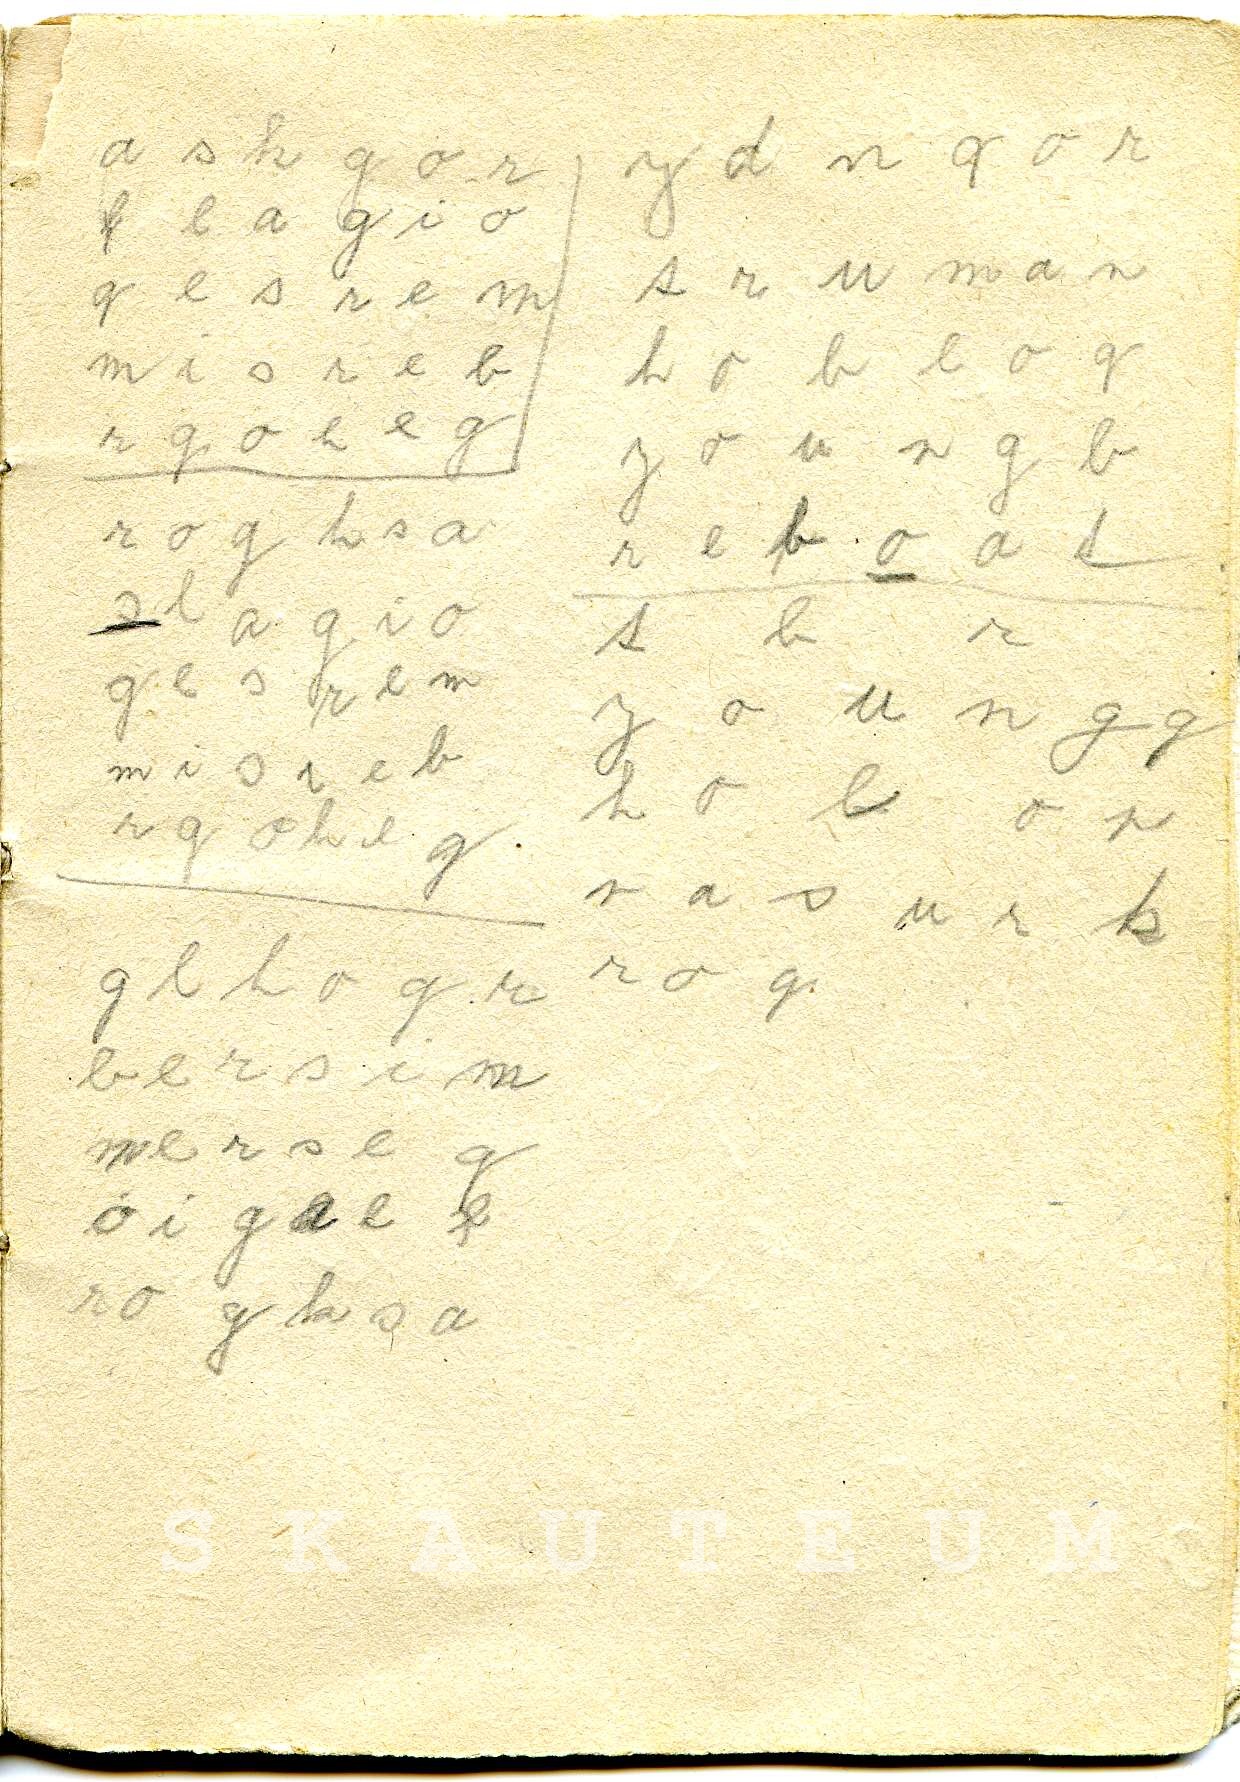 a s h g o r
l e a g i o
g e s r e m
m i s r e b
r g o h e g
r o g h s a
s l a g i o
g e s r e m
m i s r e b
r g o h e g
g l h o g r
b e r s i m
m e r s e g
o i g a e l
r o g h s a
y d n g o r
s r u m a n
h o b l o g
y o u n g b
r e b o a s
s b r
y o u n g g
h o l o n
r a s u r k
r o g
SKAUTEUM